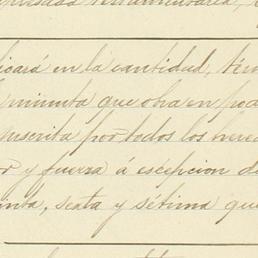 testamentaria,
icará en la cantidad, tér
minuta que obra en po
suscrita por todos los here
y fuerza á escepcion d
inta, sesta y sétima que